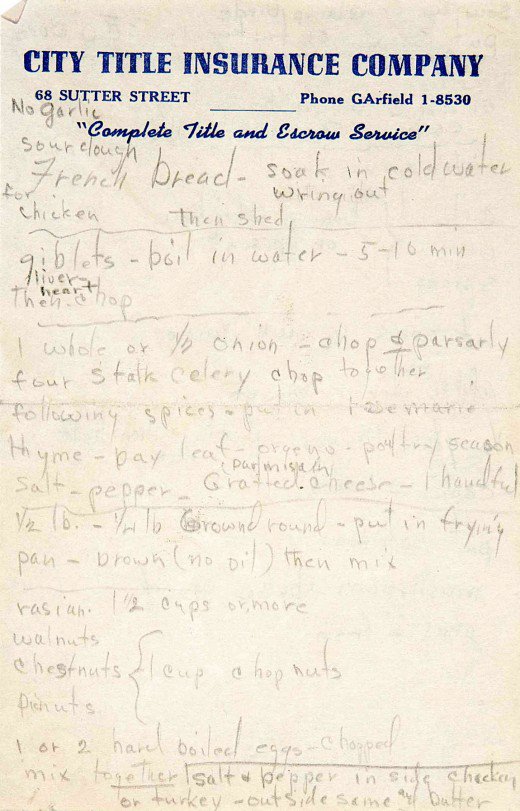 CITY TITLE INSURANCE COMPANY
68 SUTTER STREET Phone GArfield 1-8530
"Complete Title and Escrow Service"
No garlic
sourdough
French Bread - soak in cold water
wring out
for
chicken then shed
giblets - boil in water - 5-10 min
liver -
heart
then chop
1 whole or 1/2 onion - chop & parsarly
four stalk celery chop together
following spices - put in rosemarie
thyme - bay leaf - orgeno - poltry season
parmisain
salt - pepper - Gratted cheese - 1 handful
1/2 lb. - 1/4 lb Ground round - put in frying
pan - brown (no oil) then mix
rasian. 1 1/2 cups or more
walnuts
chestnuts { 1 cup chop nuts
pinuts
1 or 2 hard boiled eggs - chopped
mix together salt & pepper in side chicken
or turkey - outside same and butter